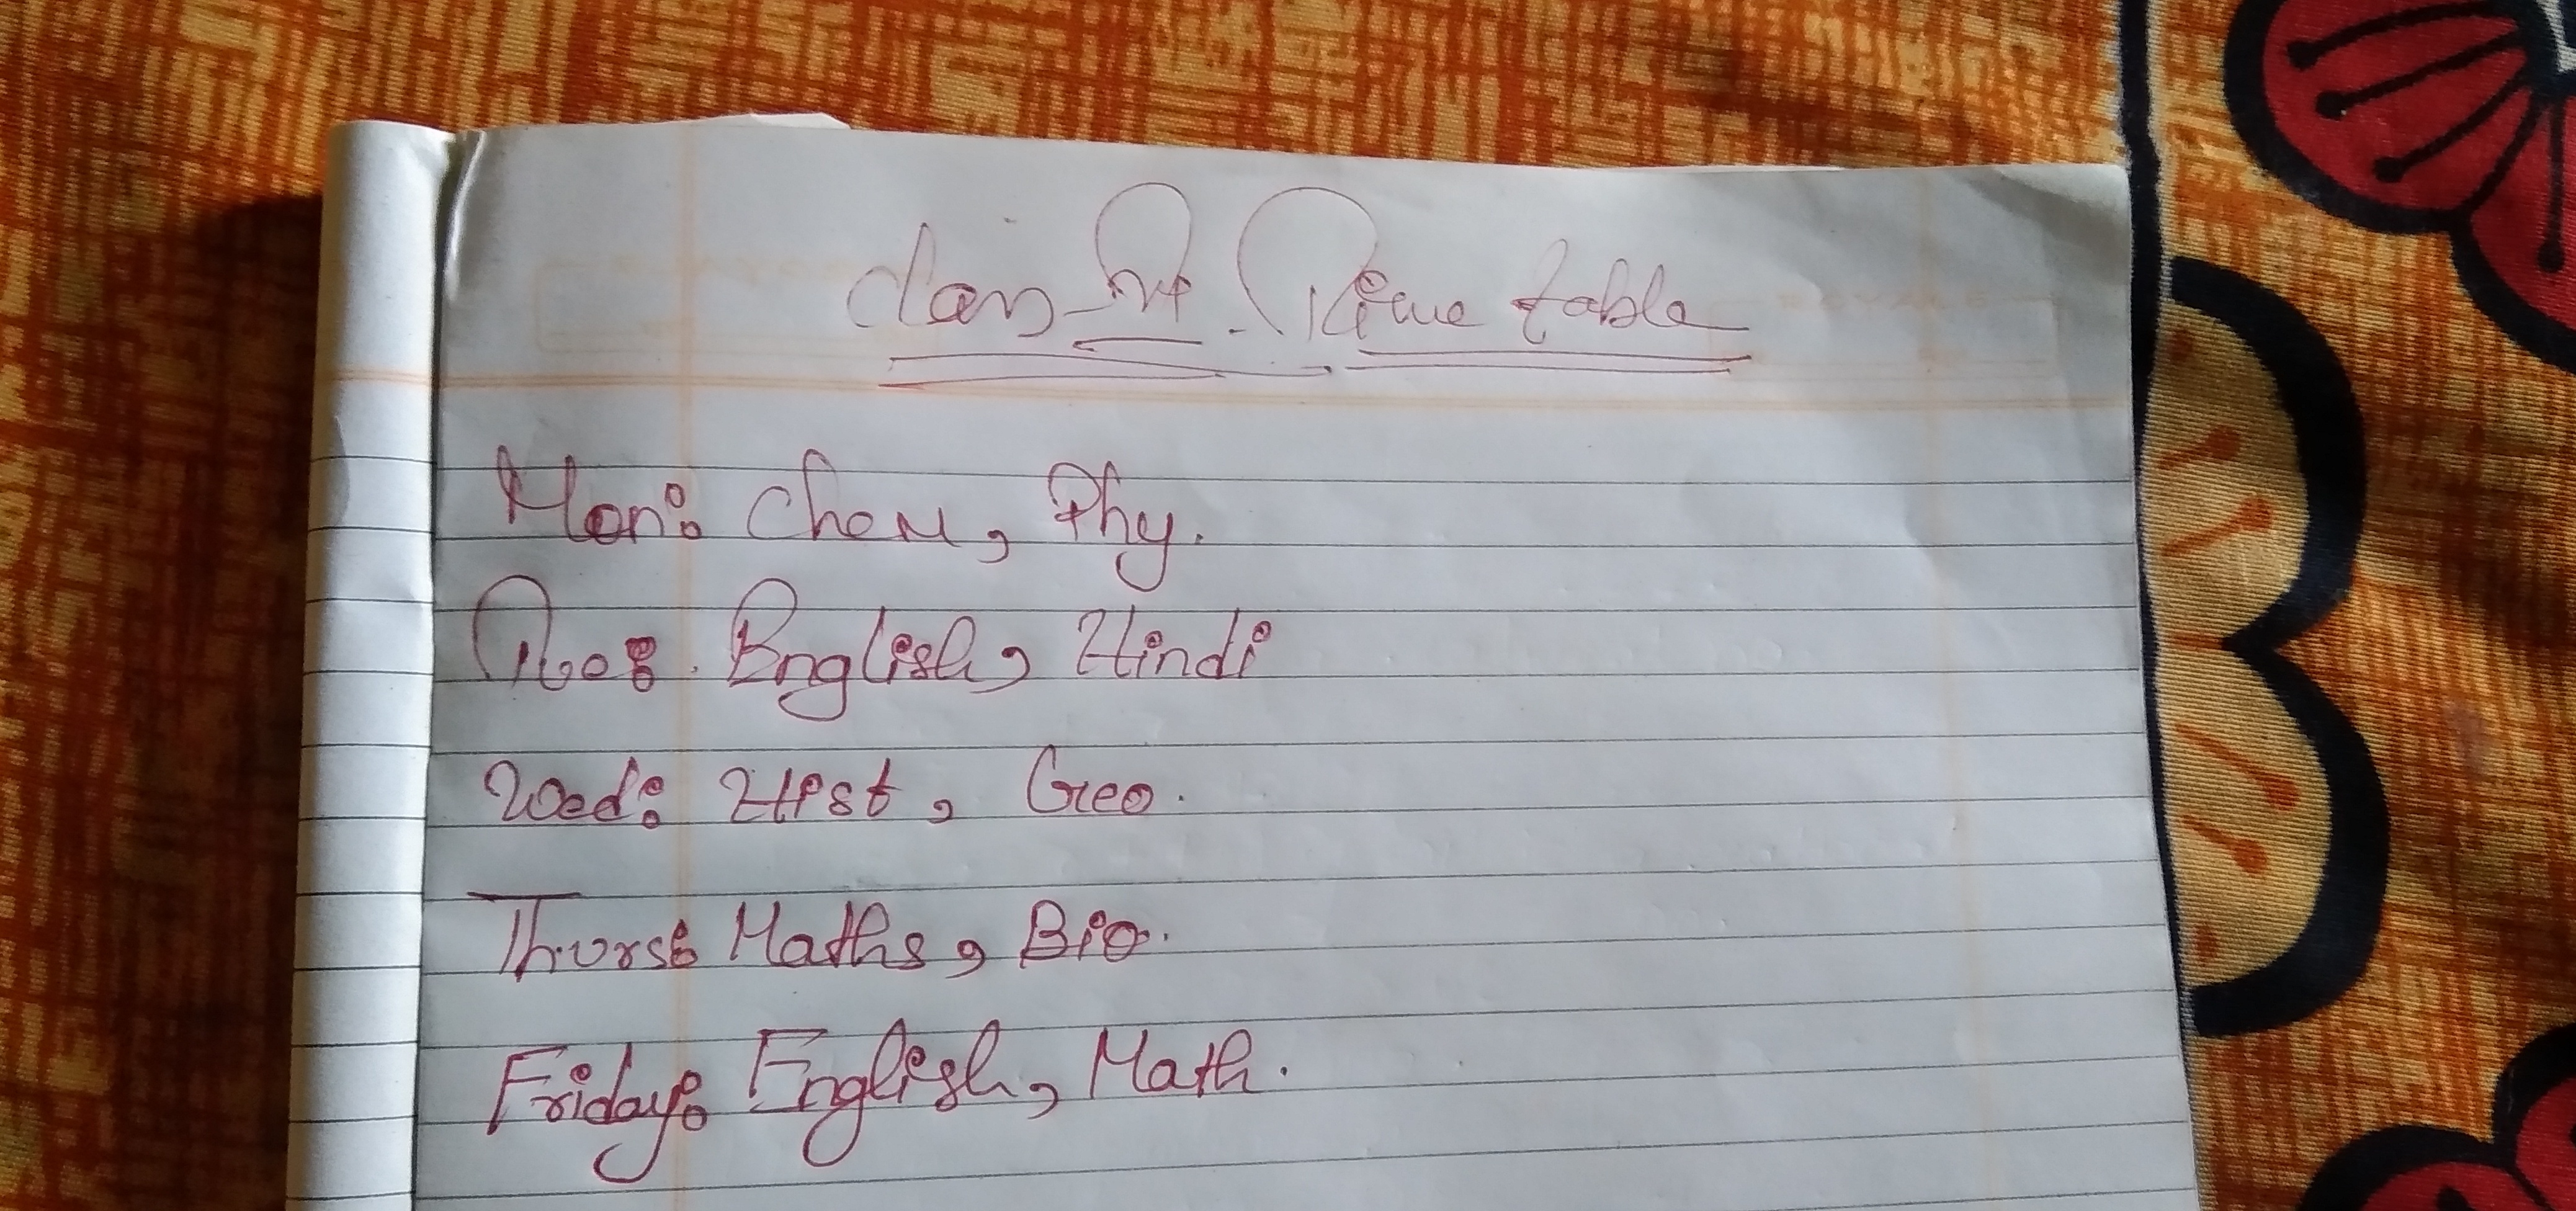 Class Time table
Mon: Chem, Phy.
Tue: English, Hindi
Wed: Hist, Geo.
Thurs: Maths, Bio.
Friday: English, Math.